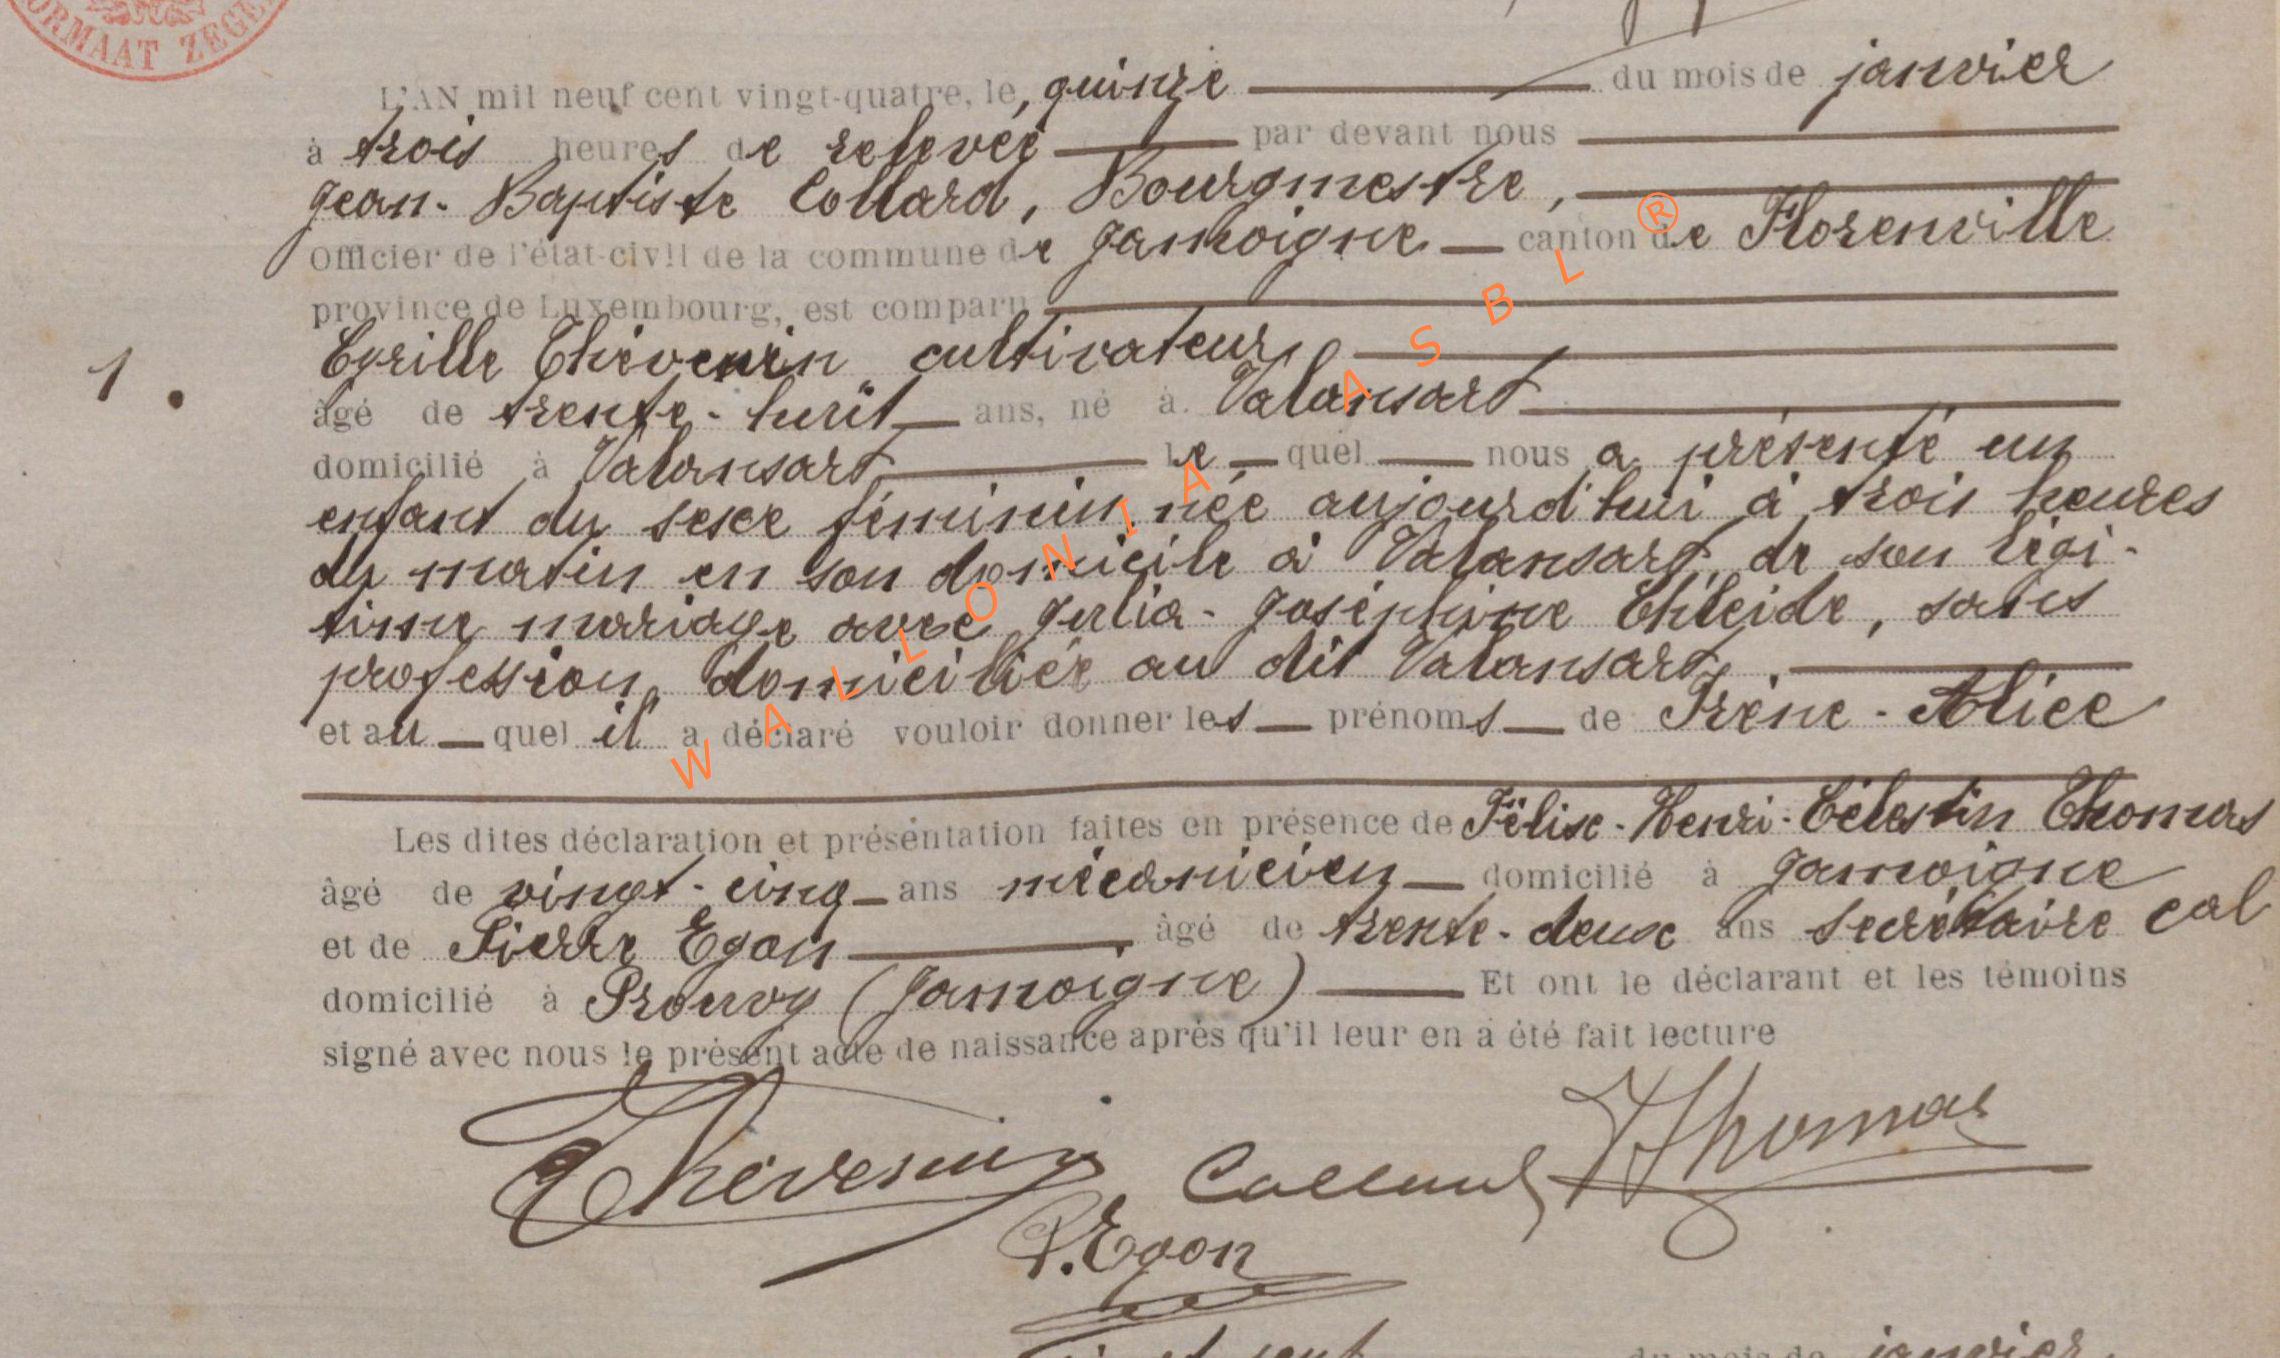 ORMAAT ZEGE
L'AN mil neuf cent vingt-quatre, le, quinze du mois de janvier
à trois heures de relevée par devant nous
Jean-Baptiste Collard, Bourgmestre,
Officier de l'état-civil de la commune de Jamoigne canton de Florenville
province de Luxembourg, est comparu
1. Cyrille Thévenin cultivateur,
âgé de trente-huit ans, né à Valansart
domicilié à Valansart le quel nous a présenté un
enfant du sexe féminin, née aujourd'hui à trois heures
du matin en son domicile à Valansart, de son légi-
time mariage avec Julia-Joséphine Théleide, sans
profession, domiciliée au dit Valansart,
et au quel il a déclaré vouloir donner les prénoms de Irène-Alice
Les dites déclaration et présentation faites en présence de Félix-Henri-Célestin Thomas
âgé de vingt-cinq ans mécanicien domicilié à Jamoigne
et de Pierre Egon âgé de trente-deux ans secrétaire cal
domicilié à Prouvy (Jamoigne) Et ont le déclarant et les témoins
signé avec nous le présent acte de naissance après qu'il leur en a été fait lecture
Thévenin Collard Thomas
P. Egon
du mois de janvier
WALLONIA ASBL ®